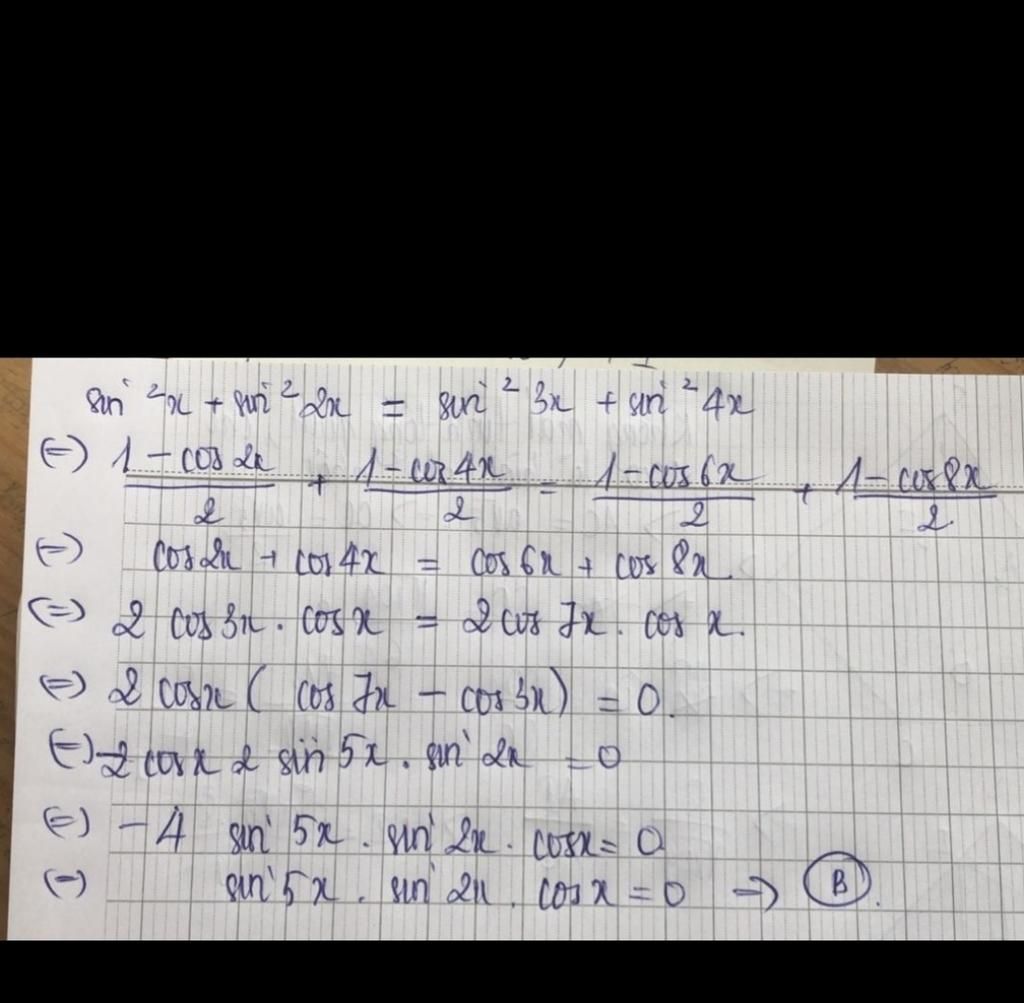 sin²x + sin²2x = sin²3x + sin²4x
(=) 1-cos2x/2 + 1-cos4x/2 = 1-cos6x/2 + 1-cos8x/2
(=) cos2x + cos4x = cos6x + cos8x
(=) 2 cos3x . cosx = 2cos7x . cos x.
(=) 2 cosx ( cos7x - cos3x) = 0.
(=) -2 cosx 2 sin5x . sin2x = 0
(=) -4 sin5x . sin2x . cosx = 0
(=) sin5x . sin2x . cosx = 0 => B.